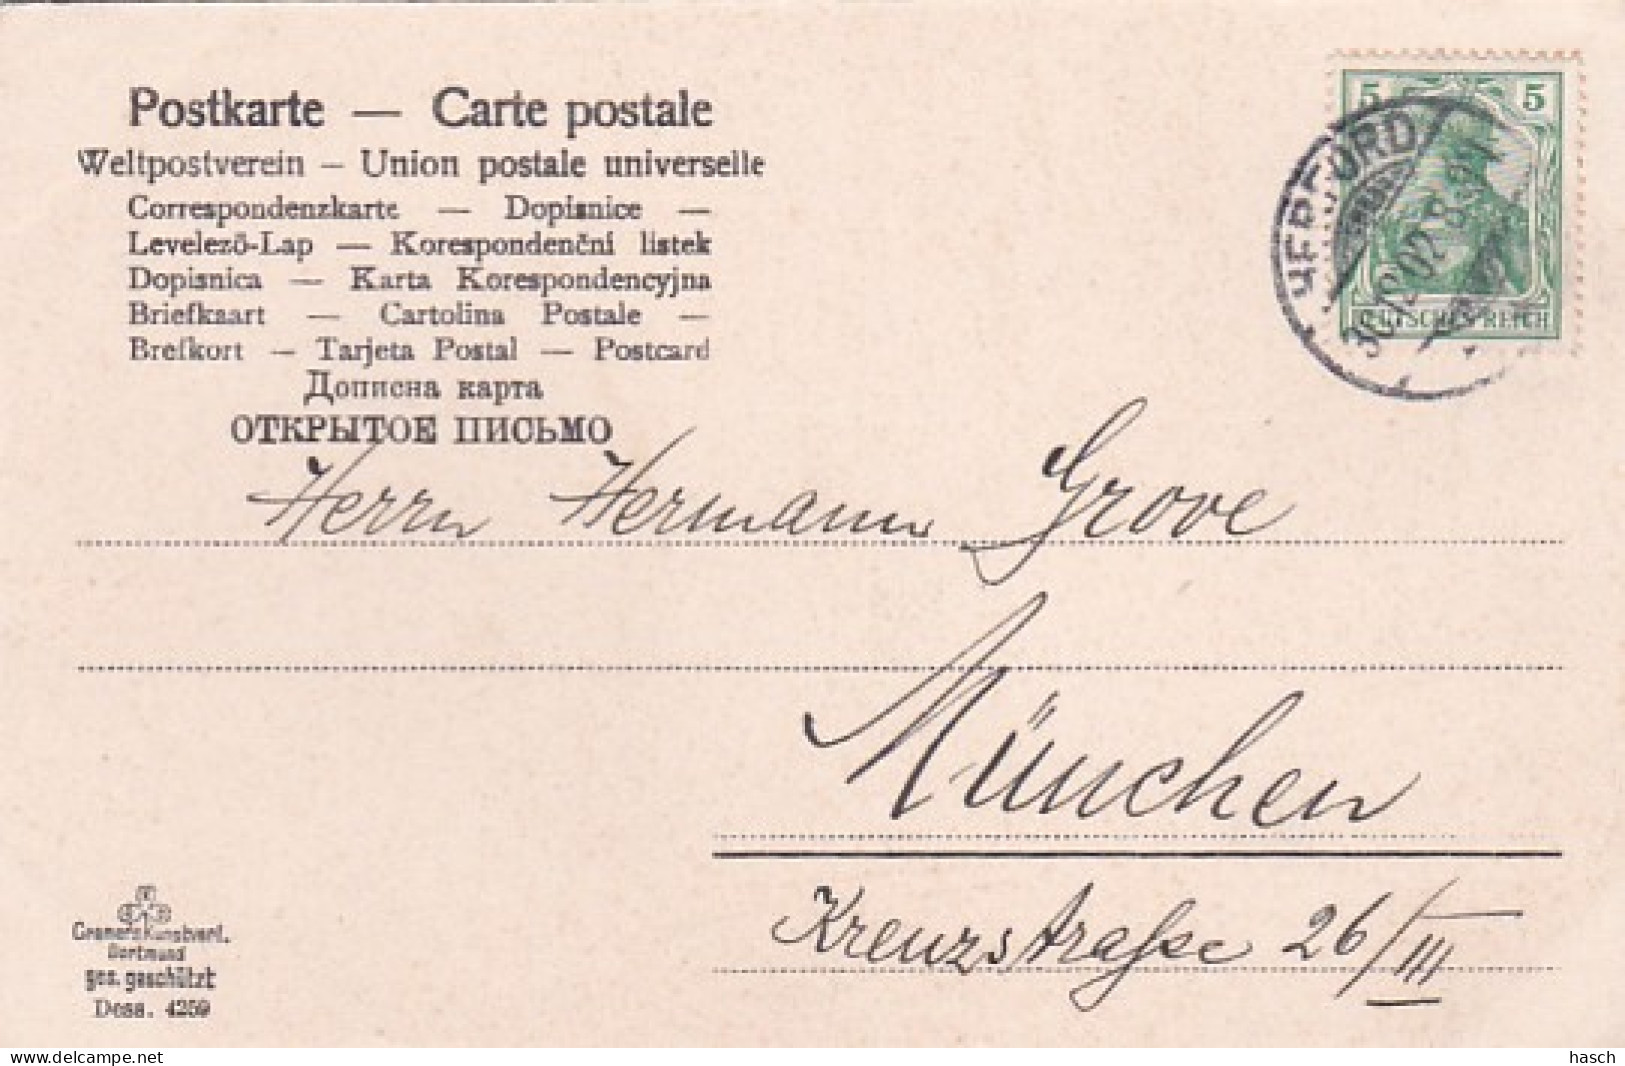 Postkarte — Carte postale
Weltpostverein – Union postale universelle
Correspondenzkarte — Dopisnice —
Levelező-Lap — Korespondenční listek
Dopisnica — Karta Korespondencyjna
Briefkaart — Cartolina Postale —
Brefkort — Tarjeta Postal — Postcard
Дописна карта
ОТКРЫТОЕ ПИСЬМО
5 5
DEUTSCHES REICH
HERFORD
30.12.02. 8-9N.
Herrn Hermann Grove
München
Kreuzstraße 26/III
Cramers Kunstverl.
Dortmund
ges. geschützt
Dess. 4259
www.delcampe.net
hasch